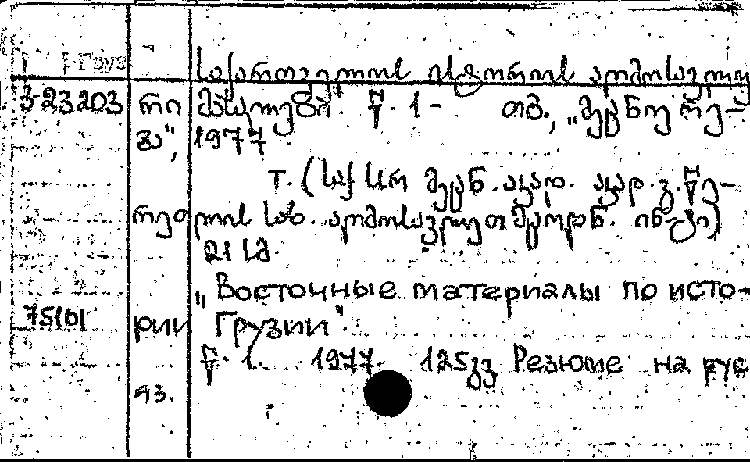 საქართველოს ისტორიის აღმოსავლუ
3-23203 რი მასალები" წ. 1 - თბ., „მეცნიერე-
ბა", 1977
т. (საქ სსრ მეცნ. აკად. აკად. გ. წე-
რეთლის სახ. აღმოსავლეთმცოდნ. ინ-ტი)
21 სმ.
„Восточные материалы по исто-
75101 рии Грузии".
წ. 1. 1977. 125გვ Резюме на рус
яз.